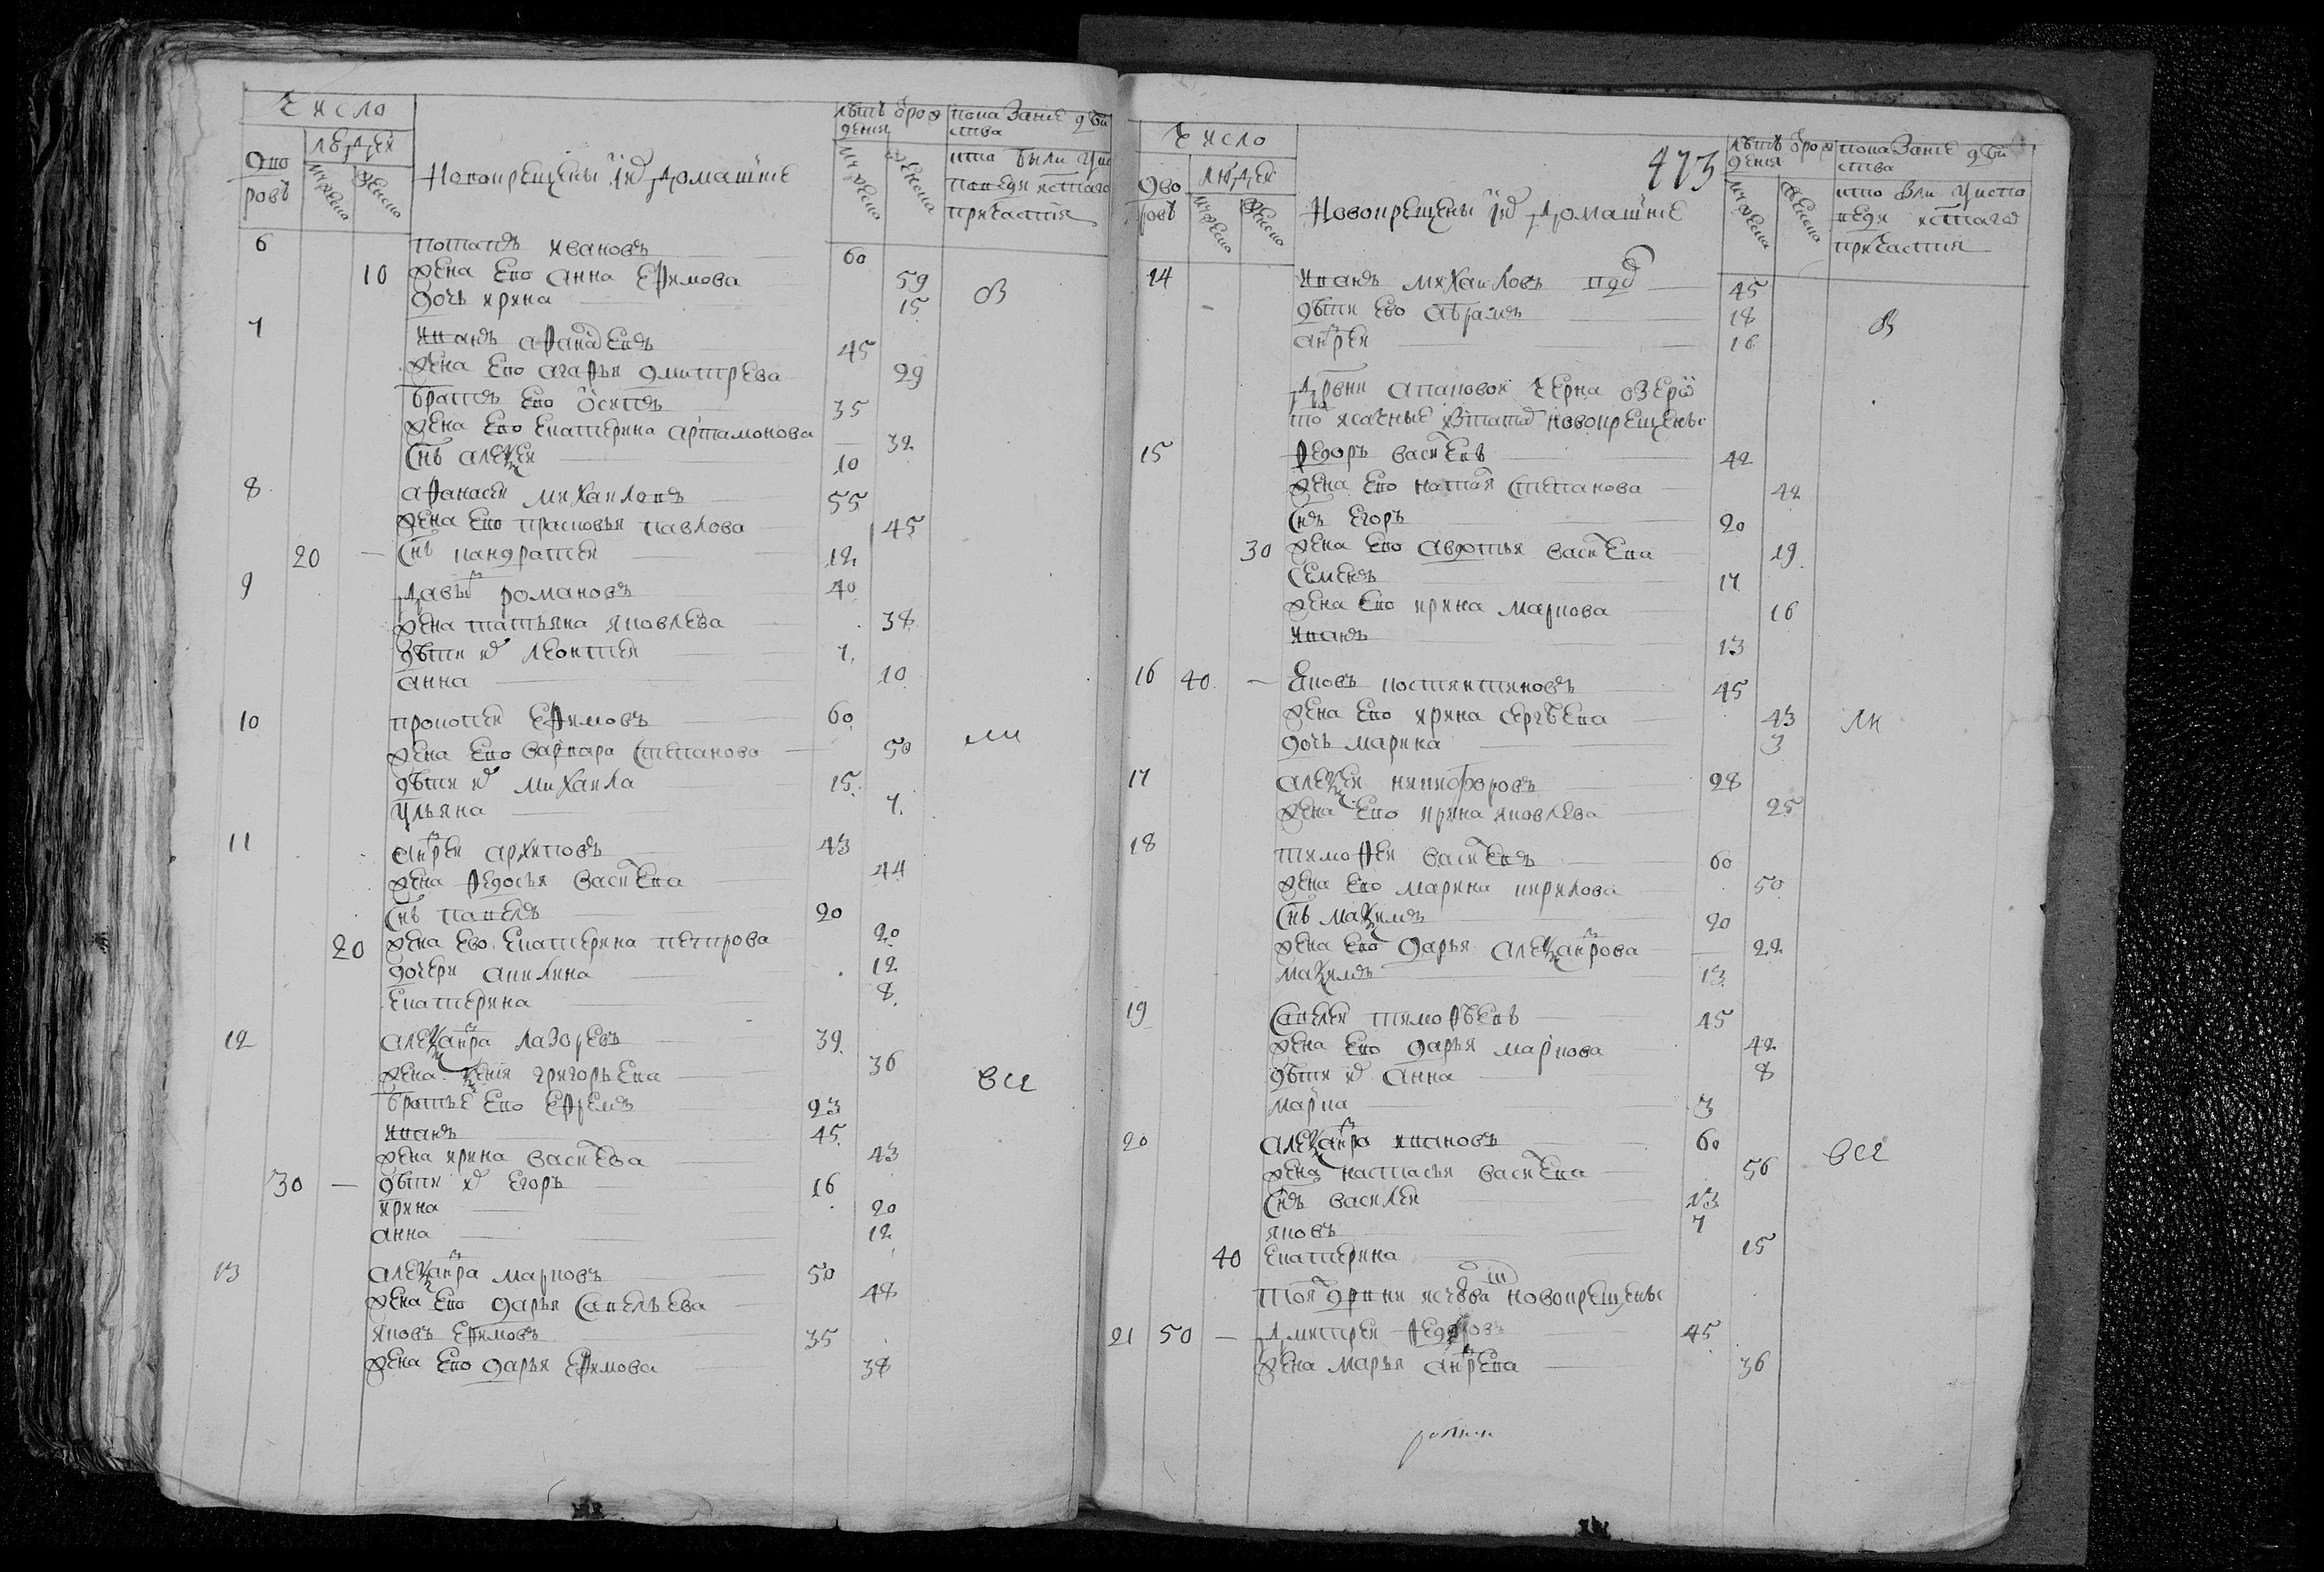 Число
людей
Дво
ровъ
мужеска
женска
Новокрещены и их домашние
лѣтъ от рож
дения
мужеска
женска
показание дѣй
ства
кто были у ис
поведи и с[вя]таго
причастия
6
потапъ ивановъ 60
10 жена ево анна ефимова 59
дочь ирина 15
7 иванъ афанасевъ 45
жена ево агафья дмитрева 29
братъ ево осипъ 35
жена ево екатерина артамонова 32
снъ алеѯеи 10
8 афанасеи михаиловъ 55
жена ево прасковья павлова 45
20 снъ кандратеи 12
9 давыд романовъ 40
жена татьяна яковлева 38
дѣти их леонтеи 7
анна 10
10 прокопеи ефимовъ 60
жена ево варвара степанова 50
дѣти их михаила 15
ульяна 7
11 андреи архиповъ 43
жена федосья васиева 44
снъ павелъ 20
20 жена ево екатерина петрова 20
дочери акилина 12
екатерина 8
12 алеѯандра лазоревъ 39
жена ѯения григорьева 36
братье ево ефремъ 23
иванъ 45
жена ирина васиева 43
30 дѣти их егоръ 16
ирина 20
анна 12
все
13 алеѯандра марковъ 50
жена ево дарья савельева 48
яковъ ефимовъ 35
жена ево дарья ефимова 38
473
Число
людей
Дво
ровъ
мужеска
женска
Новокрещены и их домашние
лѣтъ от рож
дения
мужеска
женска
показание дѣй
ства
кто были у испо
веди и с[вя]таго
причастия
14 иванъ михаиловъ вдв 45
дѣти ево абрамъ 18
андреи 16
дрвни апановой черна озеро
то ясачные из татар новокрещены
15 федоръ васиевъ 42
жена ево настася степанова 42
снъ егоръ 20
30 жена ево авдотья васиева 19
семенъ 17
жена ево ирина маркова 16
иванъ 13
16 40 яковъ костянтиновъ 45
жена ево ирина сергѣева 43
дочь марина 3
17 алеѯеи никифоровъ 28
жена ево ирина яковлева 25
18 тимофеи васиевъ 60
жена ево марина кирилова 50
снъ маѯимъ 20
жена ево дарья алеѯандрова 22
маѯимъ 13
19 савелеи тимофѣевъ 45
жена ево дарья маркова 42
дѣти их анна 8
марка 3
20 алеѯандра ивановъ 60
жена настасья васиева 56
снъ василеи 13
яковъ 7
40 екатерина 15
все
той ж дрвни новокрещены
21 50 дмитреи федоровъ 45
жена марья андрева 36